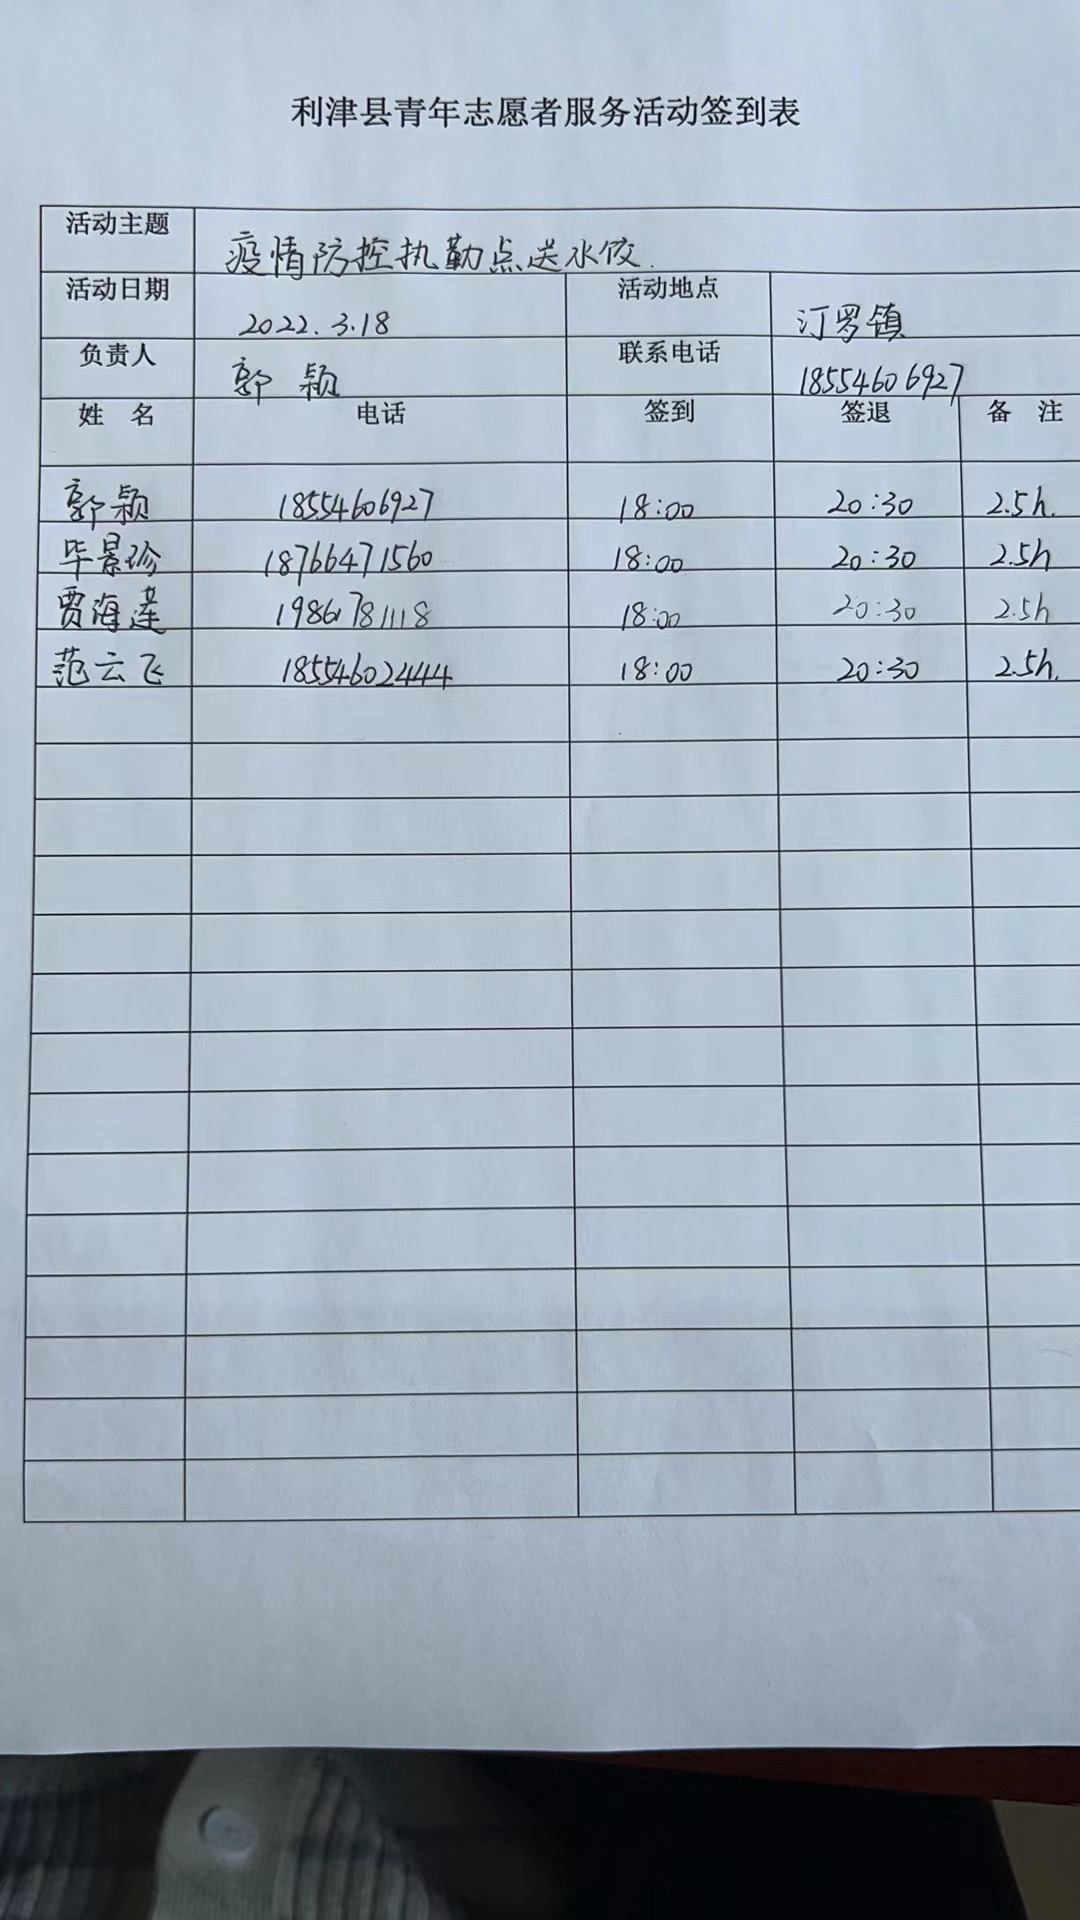 利津县青年志愿者服务活动签到表
活动主题 疫情防控执勤点送水饺.
活动日期 2022.3.18 活动地点 汀罗镇
负责人 郭颖 联系电话 18554606927
姓 名 电话 签到 签退 备 注
郭颖 18554606927 18:00 20:30 2.5h.
毕景珍 18766471560 18:00 20:30 2.5h
贾海莲 19861781118 18:00 20:30 2.5h
范云飞 18554602444 18:00 20:30 2.5h.